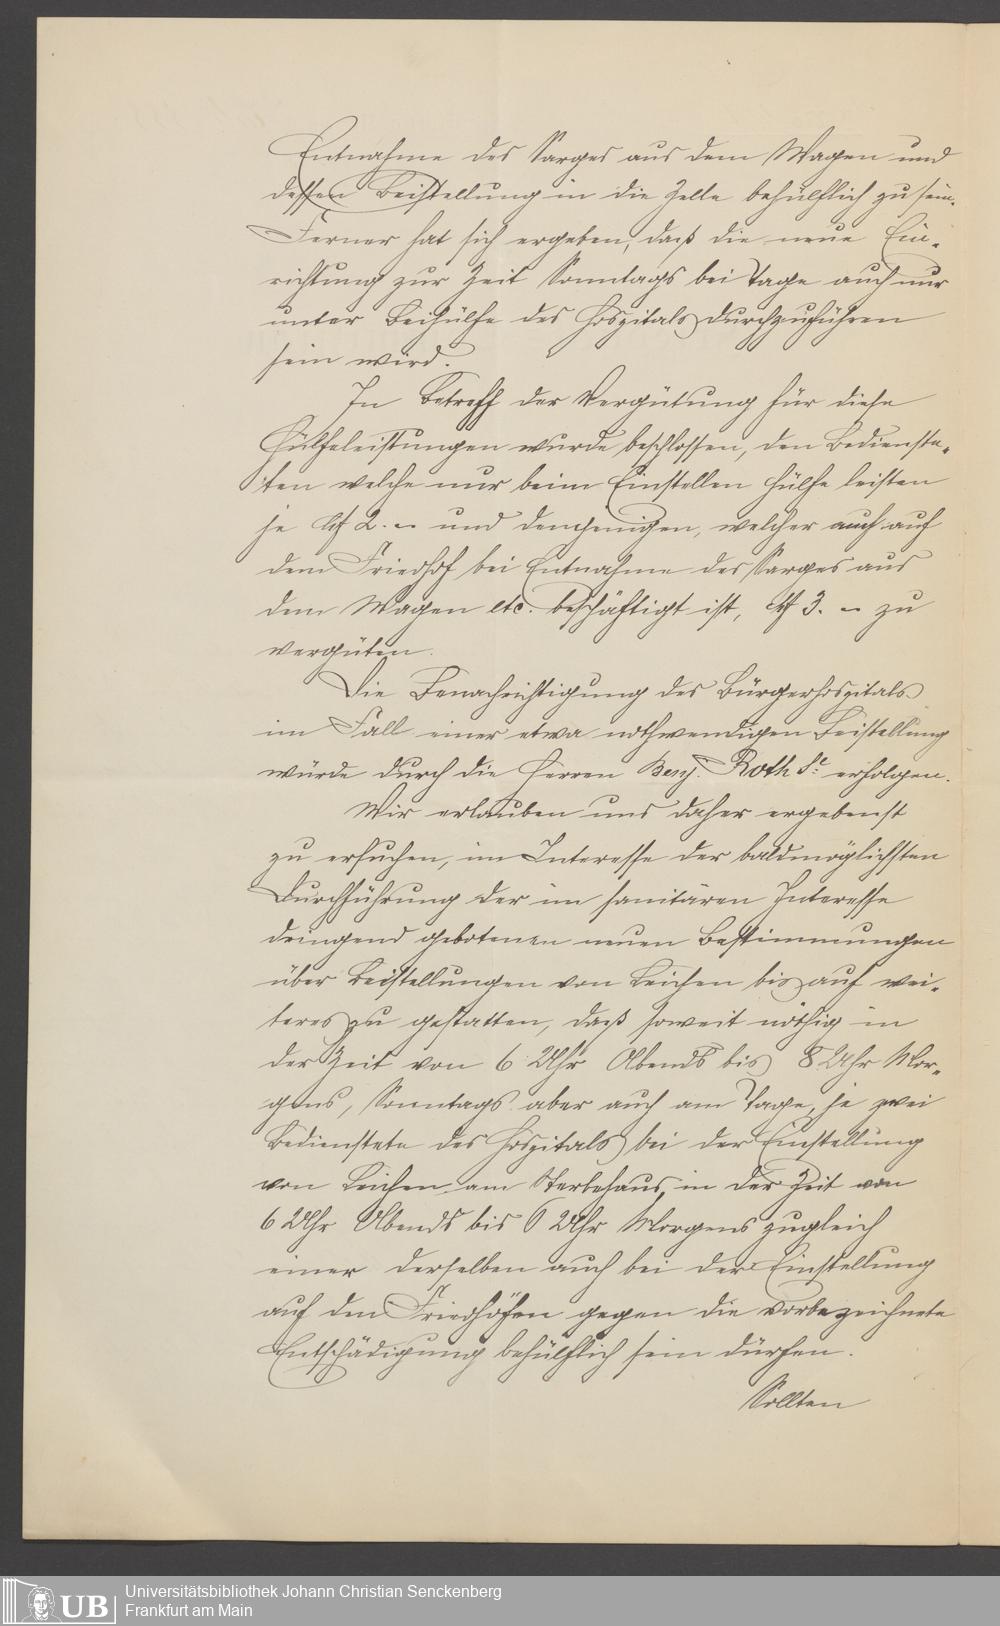 Entnahme des Sarges aus dem Wagen und
dessen Beistellung in die Zelle behülflich zu sein.
Ferner hat sich ergeben, daß die neue Ein-
richtung zur Zeit Sonntags bei Tage auch nur
unter Beihülfe des Hospitals durchzuführen
sein wird.
In Betreff der Vergütung für diese
Hülfeleistungen wurde beschlossen, den Bedienste-
ten welche nur beim Einstellen Hülfe leisten
je M 2. – und demjenigen, welcher auch auf
dem Friedhof bei Entnahme des Sarges aus
dem Wagen etc. beschäftigt ist, M 3. – zu
vergüten.
Die Benachrichtigung des Bürgerhospitals
im Fall einer etwa nothwendigen Beistellung
würde durch die Herren Benj. Roth Se erfolgen.
Wir erlauben uns daher ergebenst
zu ersuchen, im Interesse der baldmöglichsten
Durchführung der im sanitären Interesse
dringend gebotenen neuen Bestimmungen
über Beistellungen von Leichen bis auf wei-
teres zu gestatten, daß soweit nöthig in
der Zeit von 6 Uhr Abends bis 8 Uhr Mor-
gens, Sonntags aber auch am Tage, je zwei
Bedienstete des Hospitals bei der Einstellung
von Leichen am Sterbehaus, in der Zeit von
6 Uhr Abends bis 6 Uhr Morgens zugleich
einer derselben auch bei der Einstellung
auf den Friedhöfen gegen die vorbezeichnete
Entschädigung behülflich sein dürfen.
Sollten
UB
Universitätsbibliothek Johann Christian Senckenberg
Frankfurt am Main